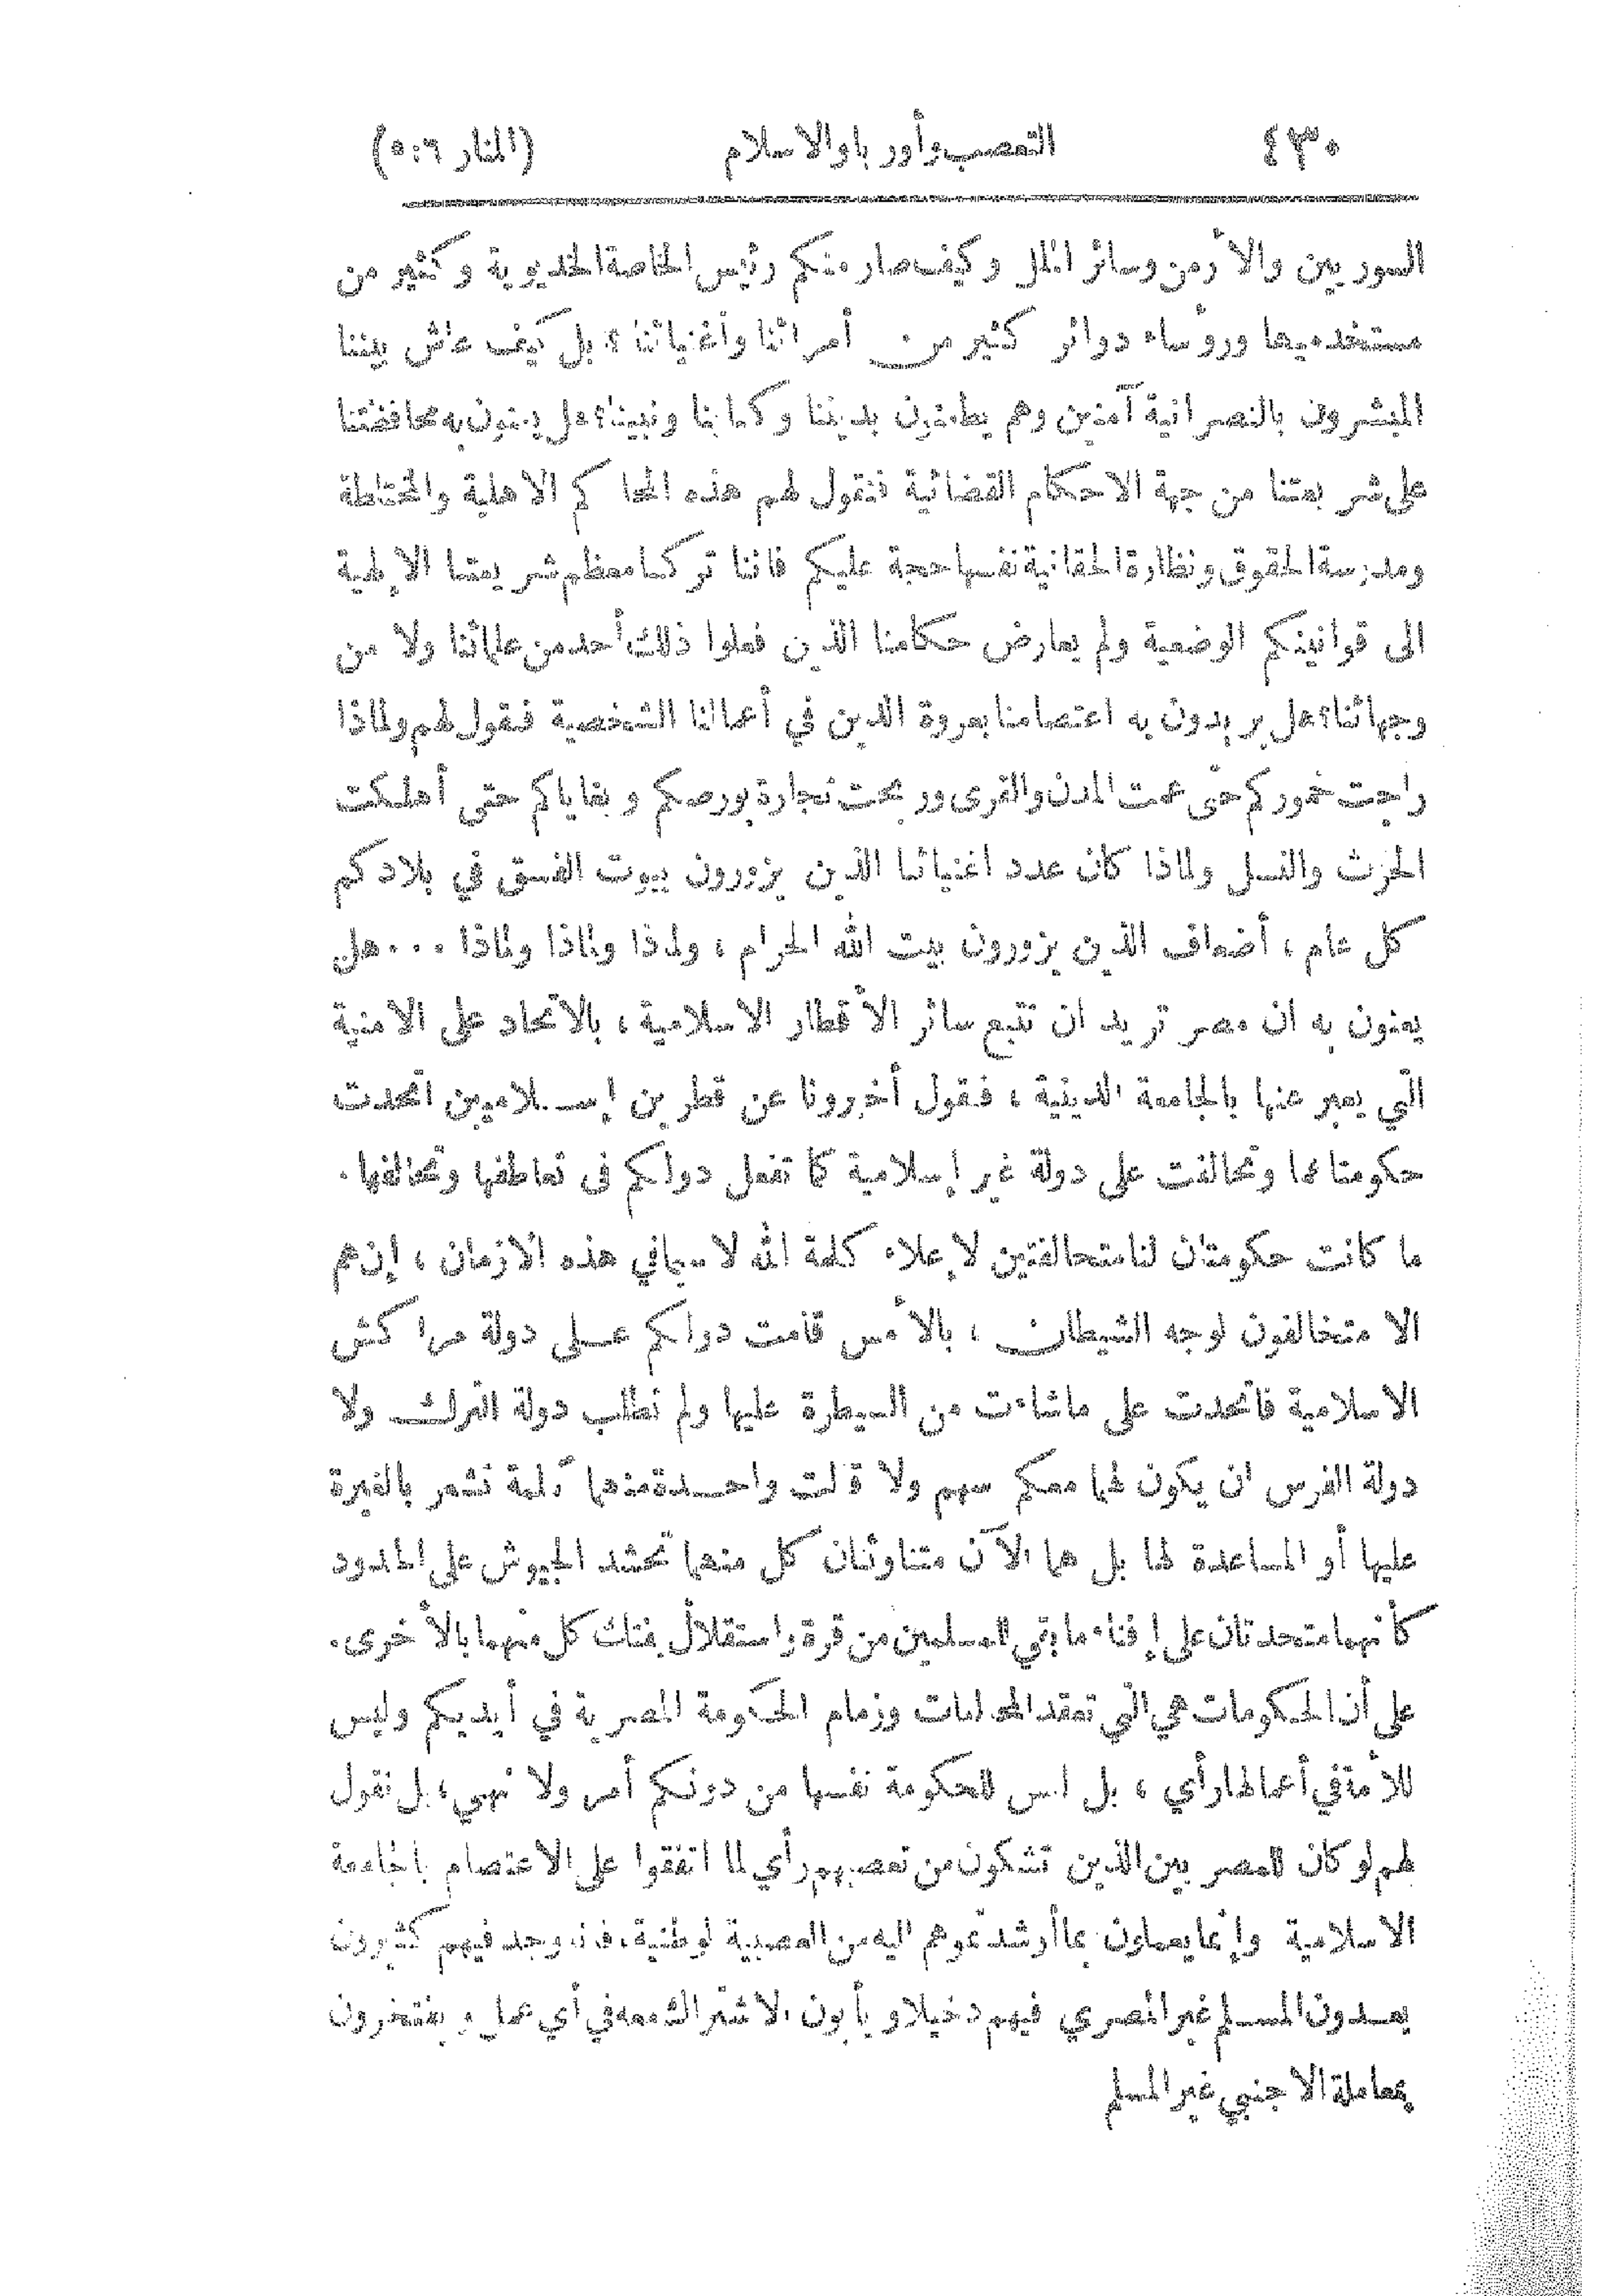 ٤٣٠ التعصب وأوربا والاسلام (المنار ٦:٥)
السوريين والأرمن وسائر الملل وكيف صار منكم رئيس الخاصة الخديوية وكثير من
مستخدميها ورؤساء دوائر كثير من أمرائنا وأغنيائنا؟ بل كيف عاش بيننا
المبشرون بالنصرانية آمنين وهم يطعنون بديننا وكتابنا ونبينا؟ هل يعنون به محافظتنا
على شريعتنا من جهة الاحكام القضائية فنقول لهم هذه المحاكم الاهلية والمختلطة
ومدرسة الحقوق ونظارة الحقانية نفسها حجة عليكم فاننا تركنا معظم شريعتنا الإلهية
الى قوانينكم الوضعية ولم يعارض حكامنا الذين فعلوا ذلك أحد من علمائنا ولا من
وجهائنا؟ هل يريدون به اعتصامنا بعروة الدين في أعمالنا الشخصية فنقول لهم ولماذا
راجت خموركم حتى عمت المدن والقرى وربحت تجارة بورصكم وبغاياكم حتى أهلكت
الحرث والنسل ولماذا كان عدد اغنيائنا الذين يزورون بيوت الفسق في بلادكم
كل عام ، أضعاف الذين يزورون بيت الله الحرام ، ولماذا ولماذا ولماذا ... هل
يعنون به ان مصر تريد ان تتبع سائر الأقطار الاسلامية ، بالاتحاد على الامنية
التي يعبر عنها بالجامعة الدينية ، فنقول أخبرونا عن قطرين إسلاميين اتحدت
حكومتاهما وتحالفت على دولة غير إسلامية كما تفعل دولكم فى تعاطفها وتحالفها .
ما كانت حكومتان لنا متحالفتين لإعلاء كلمة الله لا سيما في هذه الازمان ، إن هم
الا متخالفون لوجه الشيطان ، بالأمس قامت دولكم على دولة مراكش
الاسلامية فاتحدت على ما شاءت من السيطرة عليها ولم تطلب دولة الترك ولا
دولة الفرس ان يكون لهما معكم سهم ولا قالت واحدة منهما كلمة تشعر بالغيرة
عليها أو المساعدة لها بل هما الآن متناوئتان كل منهما تحشد الجيوش على الحدود
كأنهما متحدتان على إفناء ما بقي للمسلمين من قوة واستقلال بفتك كل منهما بالأخرى .
على أن الحكومات هي التي تعقد المحالفات وزمام الحكومة المصرية في أيديكم وليس
للأمة في أعمالها رأي ، بل ليس للحكومة نفسها من دونكم أمر ولا نهي ، بل نقول
لهم لو كان للمصريين الذين تشكون من تعصبهم رأي لما اتفقوا على الاعتصام بالجامعة
الاسلامية وإنما يعملون بما أرشدتموهم اليه من العصبية الوطنية، فانه وجد فيهم كثيرون
يعدون المسلم غير المصري فيهم دخيلا ويأبون الاشتراك معه في أي عمل ويفتخرون
بمعاملة الاجنبي غير المسلم